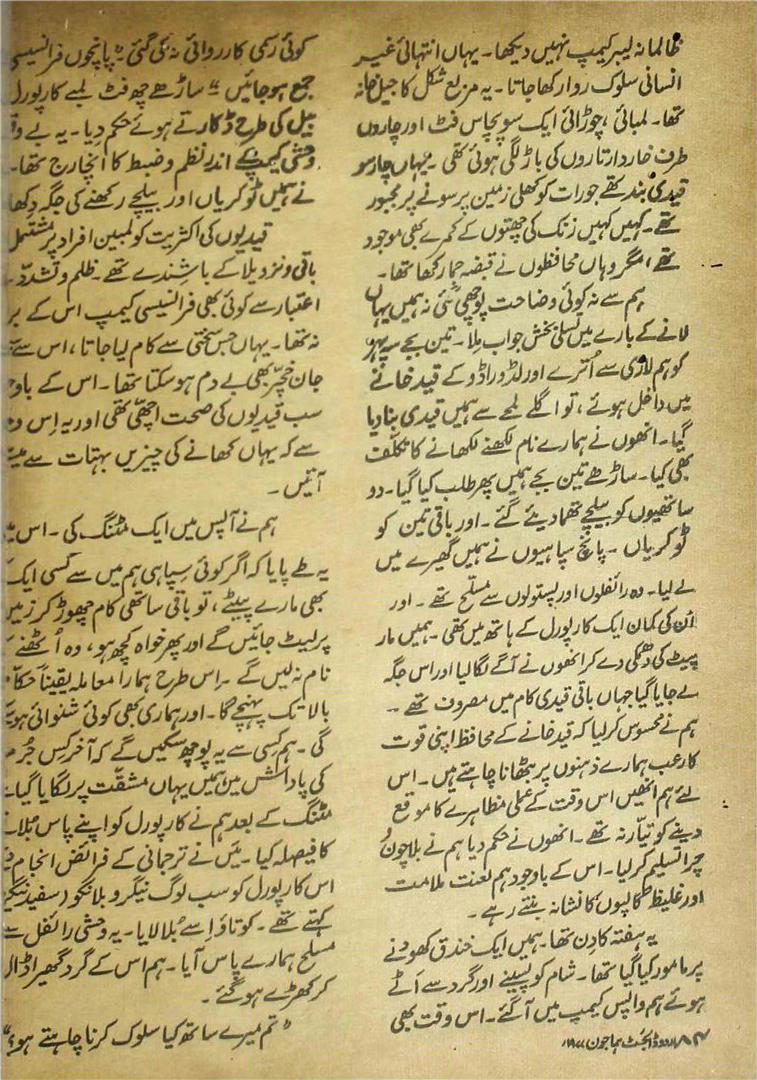 ظالمانہ لیبر کیمپ نہیں دیکھا۔ یہاں انتہائی غیر
انسانی سلوک روا رکھا جاتا۔ یہ مربع شکل کا جیل خانہ
تھا۔ لمبائی، چوڑائی ایک سو پچاس فٹ اور چاروں
طرف خاردار تاروں کی باڑ لگی ہوئی تھی۔ یہاں چار سو
قیدی بند تھے جو رات کو کھلی زمین پر سونے پر مجبور
تھے۔ کہیں کہیں زنک کی چھتوں کے کمرے بھی موجود
تھے، مگر وہاں محافظوں نے قبضہ جما رکھا تھا۔
ہم سے نہ کوئی وضاحت پوچھی گئی نہ ہمیں یہاں
لانے کے بارے میں تسلی بخش جواب ملا۔ تین بجے سہ پہر
کو ہم لاری سے اُترے اور لڈوراڈو کے قید خانے
میں داخل ہوئے، تو اگلے لمحے سے ہمیں قیدی بنا دیا
گیا۔ انھوں نے ہمارے نام لکھنے لکھانے کا تکلّف
بھی کیا۔ ساڑھے تین بجے ہمیں پھر طلب کیا گیا۔ دو
ساتھیوں کو بیلچے تھما دیئے گئے۔ اور باقی تین کو
ٹوکریاں۔ پانچ سپاہیوں نے ہمیں گھیرے میں
لے لیا۔ وہ رائفلوں اور پستولوں سے مسلح تھے۔ اور
اُن کی کمان ایک کارپورل کے ہاتھ میں تھی۔ ہمیں مار
پیٹ کی دھمکی دے کر انھوں نے آگے لگا لیا اور اس جگہ
لے جایا گیا جہاں باقی قیدی کام میں مصروف تھے۔
ہم نے محسوس کر لیا کہ قید خانے کے محافظ اپنی قوت
کا رعب ہمارے ذہنوں پر بٹھانا چاہتے ہیں۔ اس
لئے ہم انھیں اس وقت کے عملی مظاہرے کا موقع
دینے کو تیار نہ تھے۔ انھوں نے حکم دیا ہم نے بلا چون و
چرا تسلیم کر لیا۔ اس کے باوجود ہم لعنت ملامت
اور غلیظ گالیوں کا نشانہ بنتے رہے۔
یہ ہفتہ کا دن تھا۔ ہمیں ایک خندق کھودنے
پر مامور کیا گیا تھا۔ شام کو پسینے اور گرد سے اَٹے
ہوئے ہم واپس کیمپ میں آ گئے۔ اس وقت بھی
اردو ڈائجسٹ جون
کوئی رسمی کارروائی نہ کی گئی۔ "پانچوں فرانسیسی
جمع ہو جائیں" ساڑھے چھ فٹ لمبے کارپورل
بیل کی طرح ڈکارتے ہوئے حکم دیا۔ یہ بے
وحشی کیمپ کے اندر نظم و ضبط کا انچارج تھا۔
نے ہمیں ٹوکریاں اور بیلچے رکھنے کی جگہ دکھا
قیدیوں کی اکثریت کولمبین افراد پر مشتمل
باقی ونزویلا کے باشندے تھے۔ ظلم و تشدد
اعتبار سے کوئی بھی فرانسیسی کیمپ اس کے
نہ تھا۔ یہاں جس سختی سے کام لیا جاتا، اس سے
جان خچر بھی بے دم ہو سکتا تھا۔ اس کے باو
سب قیدیوں کی صحت اچھی تھی اور یہ اس
سے کہ یہاں کھانے کی چیزیں بہتات سے
آتیں۔
ہم نے آپس میں ایک مٹنگ کی۔ اس
یہ طے پایا کہ اگر کوئی سپاہی ہم میں سے کسی ایک
بھی مارے پیٹے، تو باقی ساتھی کام چھوڑ کر زمین
پر لیٹ جائیں گے اور پھر خواہ کچھ ہو، وہ اُٹھنے
نام نہ لیں گے۔ اس طرح ہمارا معاملہ یقیناً حکام
بالا تک پہنچے گا۔ اور ہماری بھی کوئی شنوائی
گی۔ ہم کسی سے یہ پوچھ سکیں گے کہ آخر کس جُرم
کی پاداش میں ہمیں یہاں مشقت پر لگایا گیا۔
مٹنگ کے بعد ہم نے کارپورل کو اپنے پاس بُلانے
کا فیصلہ کیا۔ میں نے ترجمانی کے فرائض انجام
اس کارپورل کو سب لوگ نیگرو بلانکو (سفید نیگرو
کہتے تھے۔ کوتاؤ اسے بُلا لایا۔ یہ وحشی رائفل سے
مسلح ہمارے پاس آیا۔ ہم اس کے گرد گھیرا ڈال
کر کھڑے ہو گئے۔
"تم میرے ساتھ کیا سلوک کرنا چاہتے ہو؟"